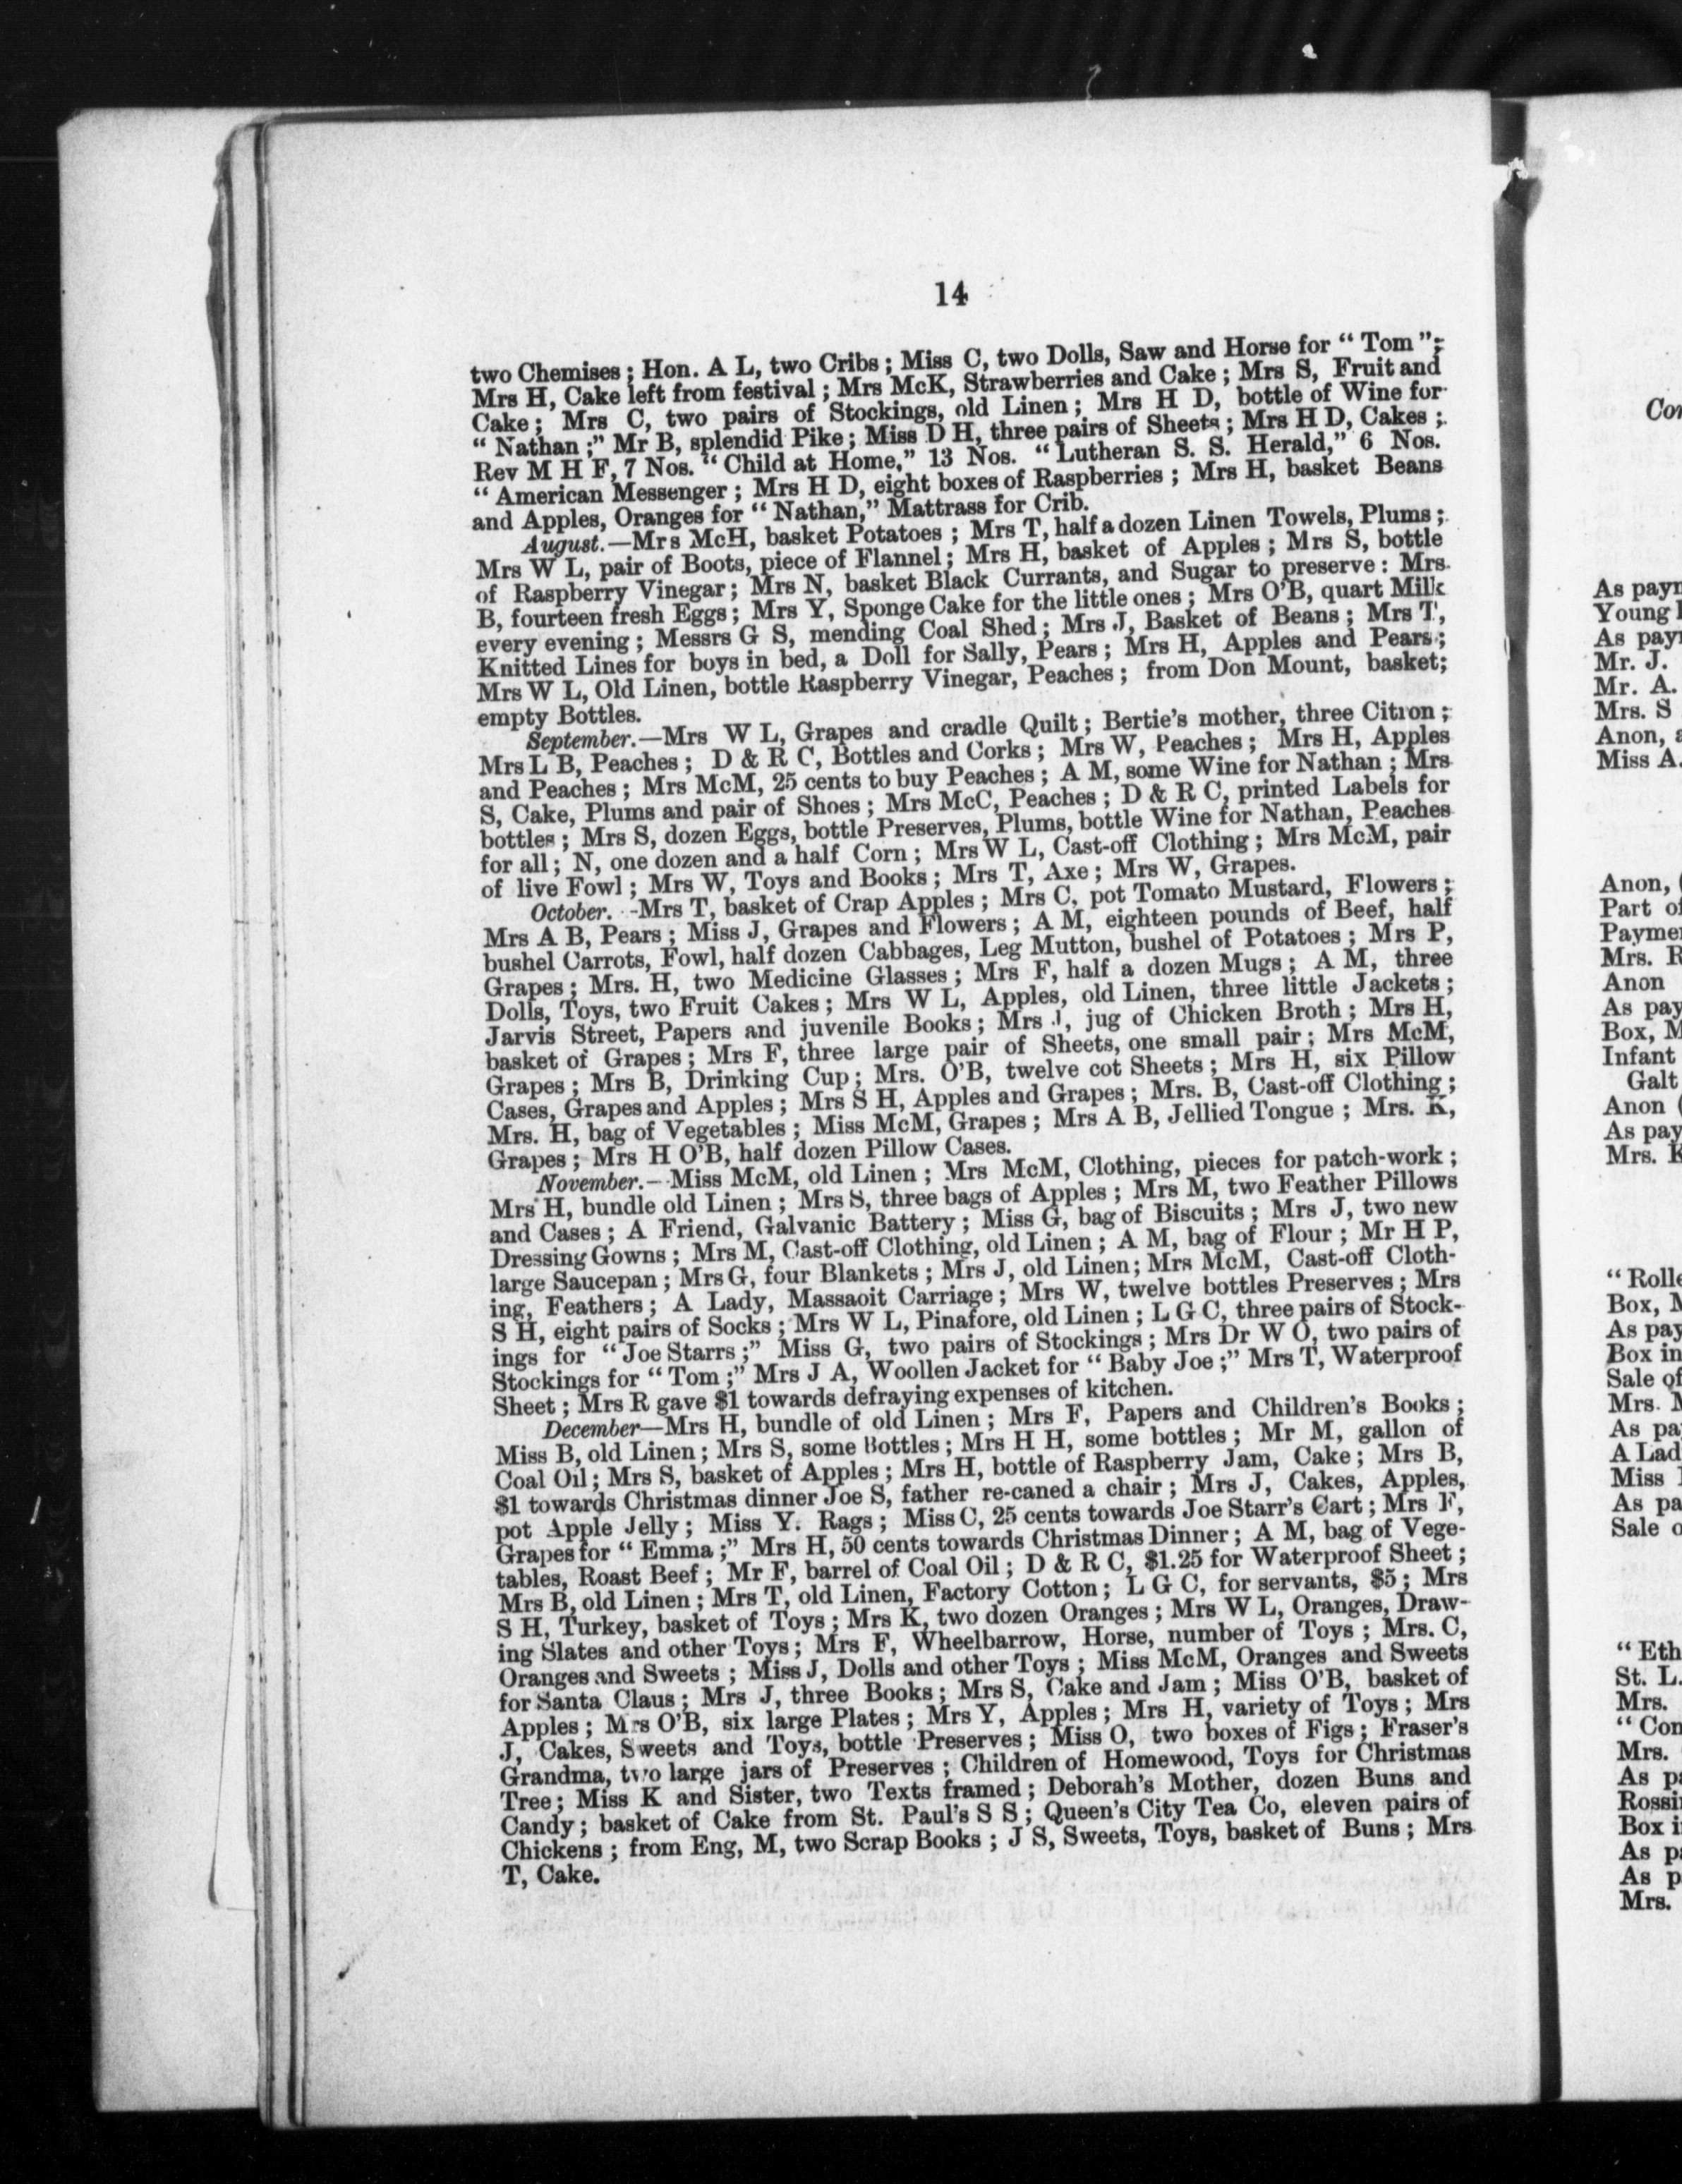 14
two Chemises ; Hon. A L, two Cribs ; Miss C, two Dolls, Saw and Horse for " Tom ";
Mrs H, Cake left from festival ; Mrs McK, Strawberries and Cake ; Mrs S, Fruit and
Cake ; Mrs C, two pairs of Stockings, old Linen ; Mrs H D, bottle of Wine for
" Nathan ;" Mr B, splendid Pike ; Miss D H, three pairs of Sheets ; Mrs H D, Cakes ;
Rev M H F, 7 Nos. " Child at Home," 13 Nos. " Lutheran S. S. Herald," 6 Nos.
" American Messenger ; Mrs H D, eight boxes of Raspberries ; Mrs H, basket Beans
and Apples, Oranges for " Nathan," Mattrass for Crib.
August.—Mrs McH, basket Potatoes ; Mrs T, half a dozen Linen Towels, Plums ;
Mrs W L, pair of Boots, piece of Flannel ; Mrs H, basket of Apples ; Mrs S, bottle
of Raspberry Vinegar ; Mrs N, basket Black Currants, and Sugar to preserve : Mrs
B, fourteen fresh Eggs ; Mrs Y, Sponge Cake for the little ones ; Mrs O'B, quart Milk
every evening ; Messrs G S, mending Coal Shed ; Mrs J, Basket of Beans ; Mrs T,
Knitted Lines for boys in bed, a Doll for Sally, Pears ; Mrs H, Apples and Pears ;
Mrs W L, Old Linen, bottle Raspberry Vinegar, Peaches ; from Don Mount, basket;
empty Bottles.
September.—Mrs W L, Grapes and cradle Quilt ; Bertie's mother, three Citron ;
Mrs L B, Peaches ; D & R C, Bottles and Corks ; Mrs W, Peaches ; Mrs H, Apples
and Peaches ; Mrs McM, 25 cents to buy Peaches ; A M, some Wine for Nathan ; Mrs
S, Cake, Plums and pair of Shoes ; Mrs McC, Peaches ; D & R C, printed Labels for
bottles ; Mrs S, dozen Eggs, bottle Preserves, Plums, bottle Wine for Nathan, Peaches
for all ; N, one dozen and a half Corn ; Mrs W L, Cast-off Clothing ; Mrs McM, pair
of live Fowl ; Mrs W, Toys and Books ; Mrs T, Axe ; Mrs W, Grapes.
October.—Mrs T, basket of Crap Apples ; Mrs C, pot Tomato Mustard, Flowers ;
Mrs A B, Pears ; Miss J, Grapes and Flowers ; A M, eighteen pounds of Beef, half
bushel Carrots, Fowl, half dozen Cabbages, Leg Mutton, bushel of Potatoes ; Mrs P,
Grapes ; Mrs. H, two Medicine Glasses ; Mrs F, half a dozen Mugs ; A M, three
Dolls, Toys, two Fruit Cakes ; Mrs W L, Apples, old Linen, three little Jackets ;
Jarvis Street, Papers and juvenile Books ; Mrs J, jug of Chicken Broth ; Mrs H,
basket of Grapes ; Mrs F, three large pair of Sheets, one small pair ; Mrs McM,
Grapes ; Mrs B, Drinking Cup ; Mrs. O'B, twelve cot Sheets ; Mrs H, six Pillow
Cases, Grapes and Apples ; Mrs S H, Apples and Grapes ; Mrs. B, Cast-off Clothing ;
Mrs. H, bag of Vegetables ; Miss McM, Grapes ; Mrs A B, Jellied Tongue ; Mrs. K,
Grapes ; Mrs H O'B, half dozen Pillow Cases.
November.—Miss McM, old Linen ; Mrs McM, Clothing, pieces for patch-work ;
Mrs H, bundle old Linen ; Mrs S, three bags of Apples ; Mrs M, two Feather Pillows
and Cases ; A Friend, Galvanic Battery ; Miss G, bag of Biscuits ; Mrs J, two new
Dressing Gowns ; Mrs M, Cast-off Clothing, old Linen ; A M, bag of Flour ; Mr H P,
large Saucepan ; Mrs G, four Blankets ; Mrs J, old Linen ; Mrs McM, Cast-off Cloth-
ing, Feathers ; A Lady, Massaoit Carriage ; Mrs W, twelve bottles Preserves ; Mrs
S H, eight pairs of Socks ; Mrs W L, Pinafore, old Linen ; L G C, three pairs of Stock-
ings for " Joe Starrs ;" Miss G, two pairs of Stockings ; Mrs Dr W O, two pairs of
Stockings for " Tom ;" Mrs J A, Woollen Jacket for " Baby Joe ;" Mrs T, Waterproof
Sheet ; Mrs R gave $1 towards defraying expenses of kitchen.
December—Mrs H, bundle of old Linen ; Mrs F, Papers and Children's Books ;
Miss B, old Linen ; Mrs S, some Bottles ; Mrs H H, some bottles ; Mr M, gallon of
Coal Oil ; Mrs S, basket of Apples ; Mrs H, bottle of Raspberry Jam, Cake ; Mrs B,
$1 towards Christmas dinner Joe S, father re-caned a chair ; Mrs J, Cakes, Apples,
pot Apple Jelly ; Miss Y. Rags ; Miss C, 25 cents towards Joe Starr's Cart ; Mrs F,
Grapes for " Emma ;" Mrs H, 50 cents towards Christmas Dinner ; A M, bag of Vege-
tables, Roast Beef ; Mr F, barrel of Coal Oil ; D & R C, $1.25 for Waterproof Sheet ;
Mrs B, old Linen ; Mrs T, old Linen, Factory Cotton ; L G C, for servants, $5 ; Mrs
S H, Turkey, basket of Toys ; Mrs K, two dozen Oranges ; Mrs W L, Oranges, Draw-
ing Slates and other Toys ; Mrs F, Wheelbarrow, Horse, number of Toys ; Mrs. C,
Oranges and Sweets ; Miss J, Dolls and other Toys ; Miss McM, Oranges and Sweets
for Santa Claus ; Mrs J, three Books ; Mrs S, Cake and Jam ; Miss O'B, basket of
Apples ; Mrs O'B, six large Plates ; Mrs Y, Apples ; Mrs H, variety of Toys ; Mrs
J, Cakes, Sweets and Toys, bottle Preserves ; Miss O, two boxes of Figs ; Fraser's
Grandma, two large jars of Preserves ; Children of Homewood, Toys for Christmas
Tree ; Miss K and Sister, two Texts framed ; Deborah's Mother, dozen Buns and
Candy ; basket of Cake from St. Paul's S S ; Queen's City Tea Co, eleven pairs of
Chickens ; from Eng, M, two Scrap Books ; J S, Sweets, Toys, basket of Buns ; Mrs
T, Cake.
As
Young
As
Mr. J.
Mr. A.
Mrs. S
Anon,
Miss A.
Anon,
Part
Mrs.
Anon
As
Box,
Infant
Galt
Anon
As
Mrs.
Box,
As
Box
Sale
Mrs.
As
A
Miss
As
Sale
St. L.
Mrs.
Mrs.
As
Box
As
As
Mrs.